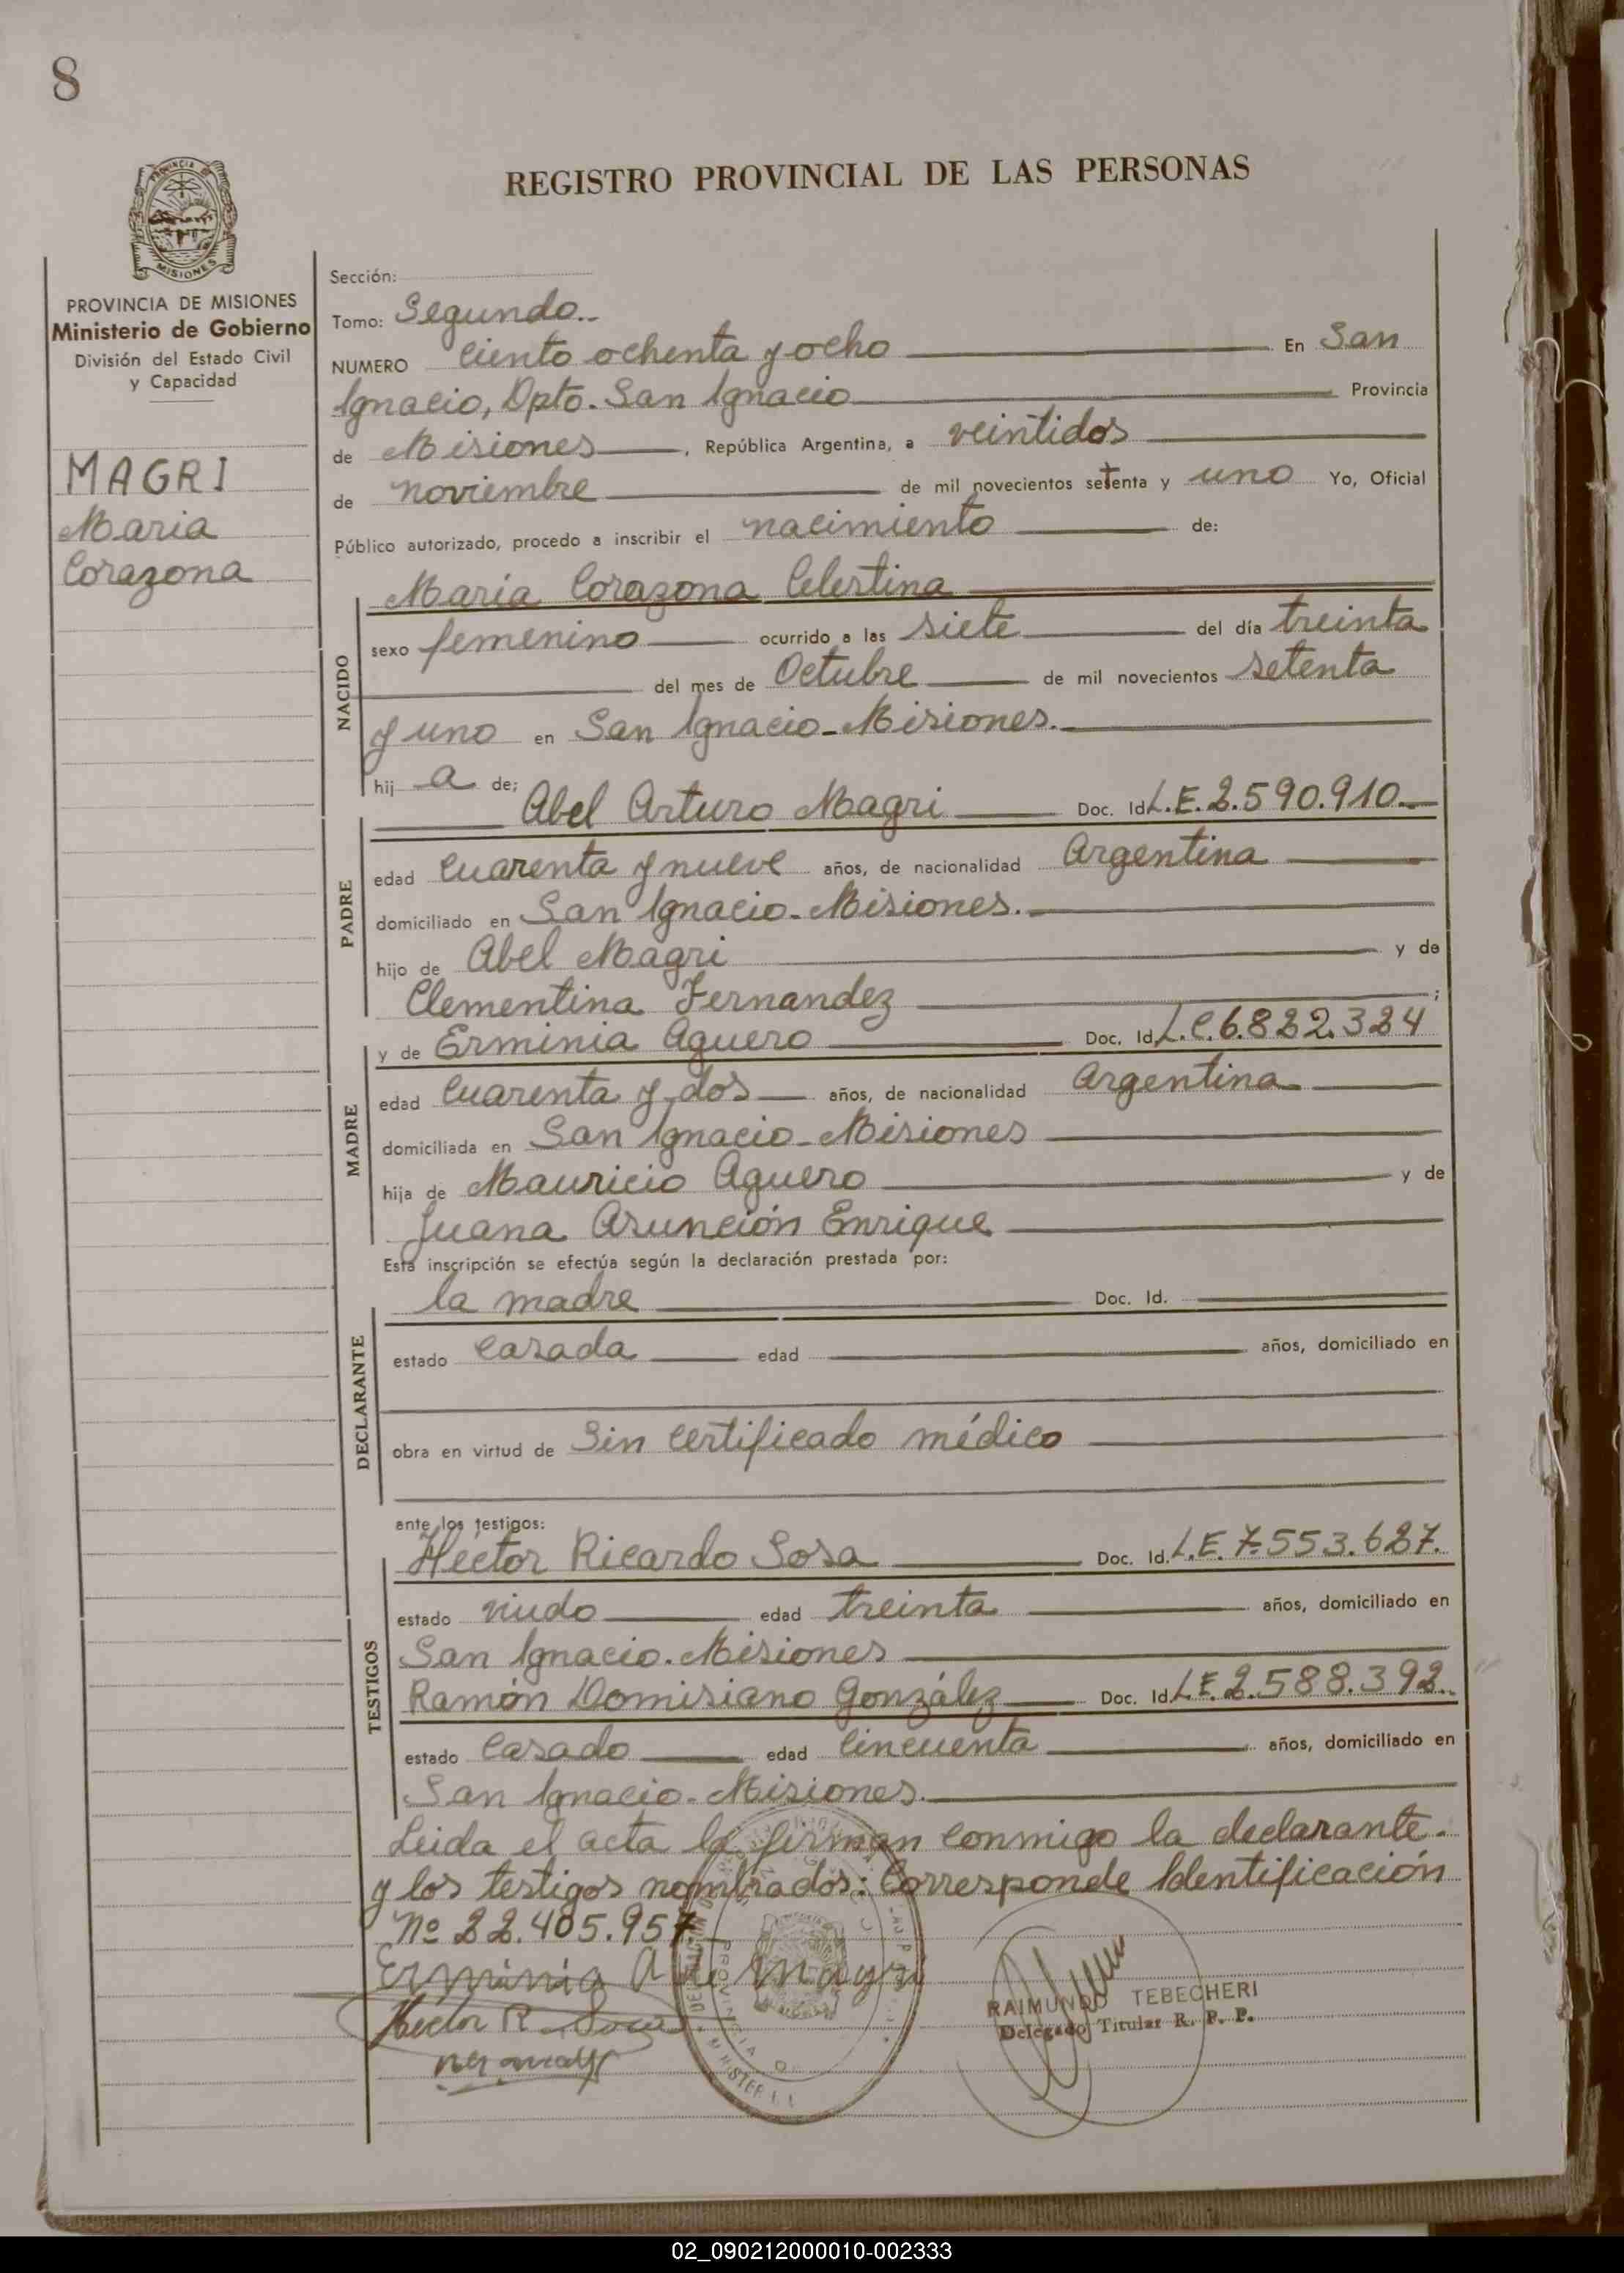 8
REGISTRO PROVINCIAL DE LAS PERSONAS
PROVINCIA
MISIONES
PROVINCIA DE MISIONES
Ministerio de Gobierno
División del Estado Civil
y Capacidad
MAGRI
Maria
Corazona
Sección:
Tomo: Segundo.-
NUMERO Ciento ochenta y ocho En San
Ignacio, Dpto. San Ignacio Provincia
de Misiones, República Argentina, a veintidos
de noviembre de mil novecientos setenta y uno Yo, Oficial
Público autorizado, procedo a inscribir el nacimiento de:
María Corazona Celestina
NACIDO
sexo femenino ocurrido a las siete del día treinta
del mes de Octubre de mil novecientos setenta
y uno en San Ignacio-Misiones.
hij a de;
Abel Arturo Magri Doc. Id. L.E. 2.590.910
PADRE
edad cuarenta y nueve años, de nacionalidad Argentina
domiciliado en San Ignacio-Misiones.
hijo de Abel Magri y de
Clementina Fernandez ;
y de Erminia Aguero Doc. Id. L.C. 6.822.324
MADRE
edad cuarenta y dos años, de nacionalidad Argentina
domiciliada en San Ignacio-Misiones
hija de Mauricio Aguero y de
Juana Asunción Enrique
Esta inscripción se efectúa según la declaración prestada por:
la madre Doc. Id.
DECLARANTE
estado Casada edad años, domiciliado en
obra en virtud de Sin certificado médico
ante los testigos:
Héctor Ricardo Sosa Doc. Id. L.E. 7.553.627.
TESTIGOS
estado viudo edad treinta años, domiciliado en
San Ignacio. Misiones
Ramón Domisiano González Doc. Id. L.E. 2.588.392.
estado Casado edad Cincuenta años, domiciliado en
San Ignacio-Misiones.
Leida el acta la firman conmigo la declarante.
y los testigos nombrados: Corresponde Identificación
Nº 22.405.957
Erminia A de Magri
Hector R Sosa
RAIMUNDO TEBECHERI
Delegado Titular R. P. P.
02_090212000010-002333